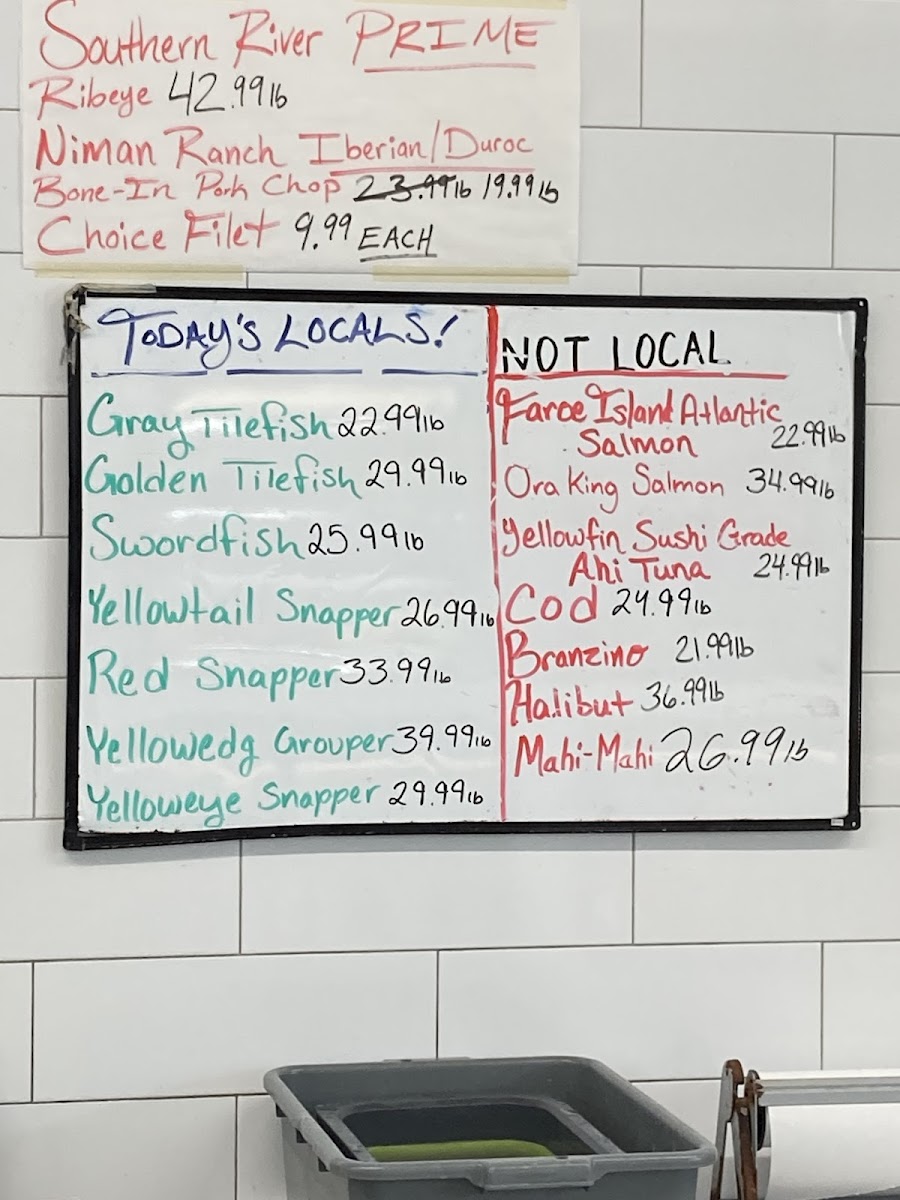 Southern River PRIME
Ribeye 42.99 lb
Niman Ranch Iberian/Duroc
Bone-In Pork Chop 23.99 lb 19.99 lb
Choice Filet 9.99 EACH
TODAY'S LOCALS!
Gray Tilefish 22.99 lb
Golden Tilefish 29.99 lb
Swordfish 25.99 lb
Yellowtail Snapper 26.99 lb
Red Snapper 33.99 lb
Yellowedg Grouper 39.99 lb
Yelloweye Snapper 29.99 lb
NOT LOCAL
Faroe Island Atlantic
Salmon 22.99 lb
Ora King Salmon 34.99 lb
Yellowfin Sushi Grade
Ahi Tuna 24.99 lb
Cod 24.99 lb
Branzino 21.99 lb
Halibut 36.99 lb
Mahi-Mahi 26.99 lb